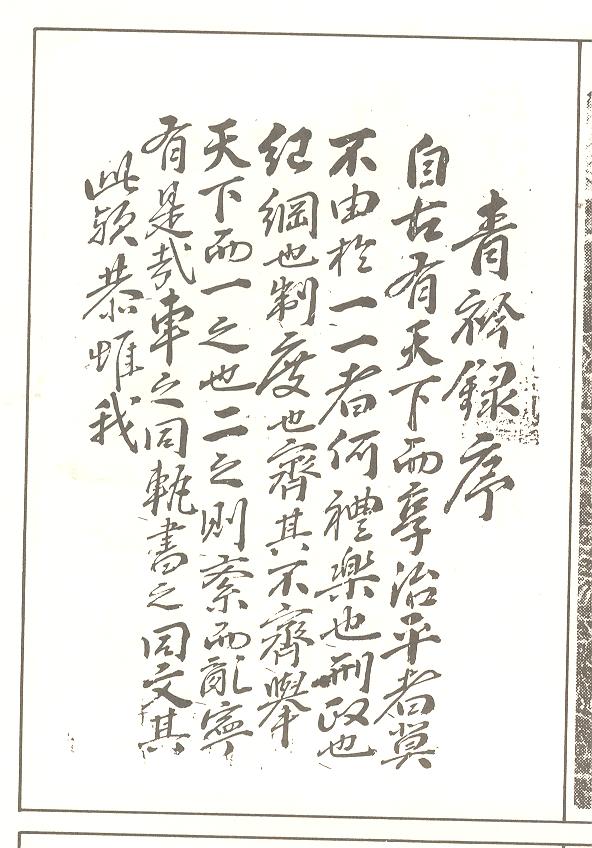 青衿録序
自古有天下而享治平者莫
不由於一一者何禮樂也刑政也
紀綱也制度也齊其不齊舉
天下而一之也二之則紊而亂寧
有是哉車之同軌書之同文其
此歟恭惟我